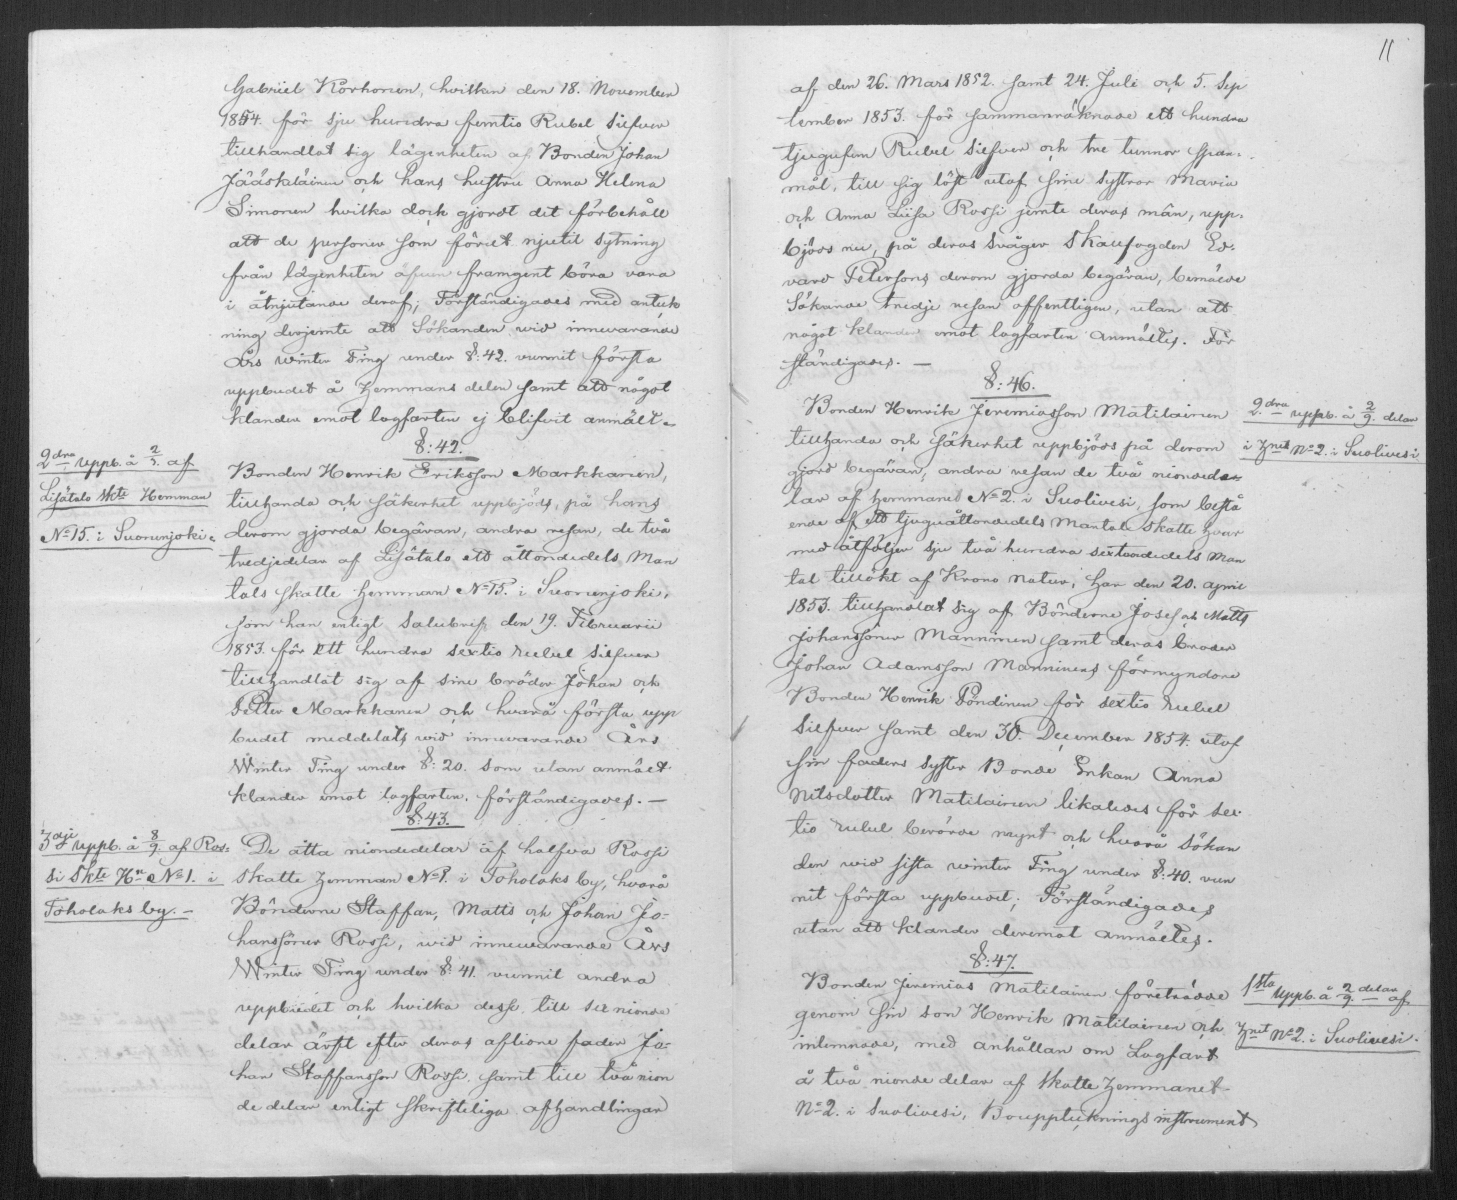 Gabriel Korhonen, hvilken den 18. November
1854. för sju hundra femtio Rubel Silfver
tillhandlat sig lägenheten af Bonden Johan
Jääskläinen och hans hustru Anna Helena
Simonen hvilka dock gjordt det förbehåll
att de personer som förut njutit sytning
från lägenheten äfven framgent böra vara
i åtnjutande deraf; Förständigades med anteck
ning derjemte att Sökanden wid innevarande
Års Winter Ting under §: 42. vunnit första
uppbudet å hemmans delen samt att något
klander emot lagfarten ej blifvit anmält.
§: 42.
2dra uppb. å 2/3. af
Lisätalo Skte Hemman
No 15. i Suorunjoki.
Bonden Henrik Eriksson Markkanen,
tillhanda och säkerhet uppbjöds, på hans
derom gjorda begäran, andra resan, de två
tredjedelar af Lisätalo ett åttondedels Man
tals skatte hemman No 15. i Suorunjoki,
som han enligt Salubref den 19. Februarii
1853. för Ett hundra sextio rubel silfver
tillhandlat sig af sine bröder Johan och
Petter Markkanen och hvarå första upp
budet meddelats wid innevarande Års
Winter Ting under §: 20. som utan anmält
klander emot lagfarten, förständigades. —
§: 43.
3dje uppb. å 8/9. af Ros-
si Skte Hn No 1. i
Toholaks by. —
De åtta niondedelar af halfva Rossi
skatte hemman No 1. i Toholaks by, hvarå
Bönderne Staffan, Matts och Johan Jo-
hanssöner Rossi, wid innevarande Års
Winter Ting under §: 41. vunnit andra
uppbudet och hvilka desse till sex nionde
delar ärft efter deras aflidne fader Jo-
han Staffansson Rossi samt till två nion
de delar enligt skriftliga afhandlingar
11
af den 26. Mars 1852. samt 24. Juli och 5. Sep
tember 1853. för sammanräknade ett hundra
tjugufem Rubel silfver och tre tunnor span-
mål, till sig löst utaf sine systrar Maria
och Anna Liisa Rossi jemte deras män, upp-
bjöds nu, på deras Svåger Skaufogden Ed-
vard Petersons derom gjorda begäran, bemälde
Sökande tredje resan offentligen, utan att
något klander emot lagfarten anmältes. För
ständigades. —
§: 46.
2.dra uppb. å 2/9. delar
i hmt No 2. i Suolivesi
Bonden Henrik Jeremiasson Matilainen
tillhanda och säkerhet uppbjöds på derom
gjord begäran, andra resan de två niondede-
lar af hemmanet No 2. i Suolivesi, som bestå
ende af ett tjuguåttondedels Mantal skatte hvar
med åtföljer sju två hundra sextondedels Man
tal tillökt af Krono natur, har den 20. april
1853. tillhandlat sig af Bönderne Josef och Matts
Johanssöner Manninen samt deras broder
Johan Adamsson Manninens förmyndare
Bonden Henrik Pöndinen för sextio rubel
Silfver samt den 30. December 1854. utaf
sin faders syster Bonde Enkan Anna
Nilsdotter Matilainen likaledes för sex-
tio rubel berörde mynt och hvarå Sökan
den wid sista winter Ting under §: 40. vun
nit första uppbudet; Förständigades
utan att klander deremot anmältes.
§: 47.
1sta Uppb. å 2/9. delar af
hmt No 2. i Suolivesi.
Bonden Jeremias Matilainen företrädde
genom sin son Henrik Matilainen och
inlemnade, med anhållan om Lagfart
å två nionde delar af Skatte hemmanet
No 2. i Suolivesi, Bouppteckningsinstrument